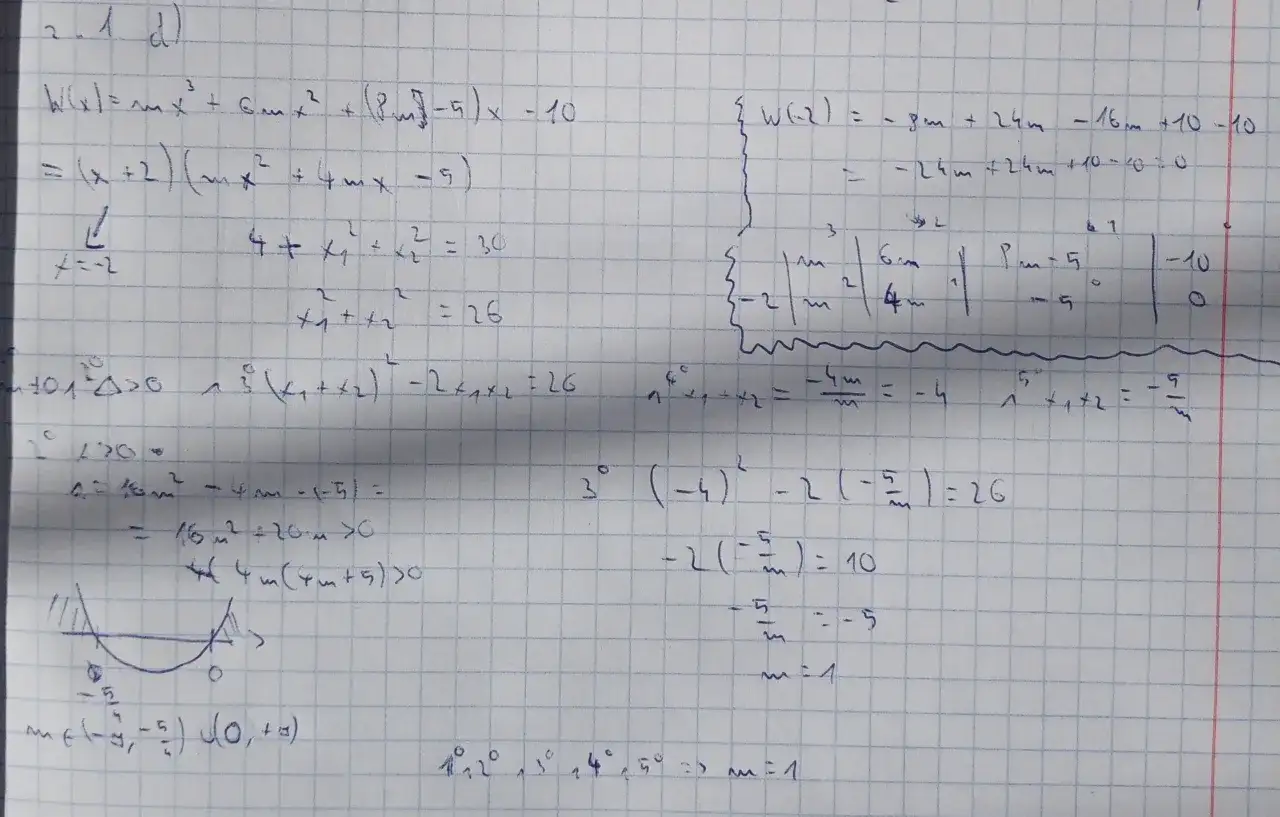 z. 1 d)
W(x) = mx³ + 6mx² + (8m - 5)x - 10
= (x + 2)(mx² + 4mx - 5)
x = -2
4 + x₁² + x₂² = 30
x₁² + x₂² = 26
W(-2) = -8m + 24m - 16m + 10 - 10
= -24m + 24m + 10 - 10 = 0
3 2 1
m | 6m | 8m - 5 | -10
-2 | m ² | 4m ¹ | -5 ⁰ | 0
≠ 0 ∧ 2° Δ > 0 ∧ 3° (x₁ + x₂)² - 2x₁x₂ = 26 ∧ 4° x₁ + x₂ = -4m/m = -4 ∧ 5° x₁x₂ = -5/m
2° Δ > 0
Δ = 16m² - 4m · (-5) =
= 16m² + 20m > 0
4m(4m + 5) > 0
-5/4 0
m ∈ (-∞, -5/4) ∪ (0, +∞)
3° (-4)² - 2(-5/m) = 26
-2(-5/m) = 10
-5/m = -5
m = 1
1° ∧ 2° ∧ 3° ∧ 4° ∧ 5° => m = 1